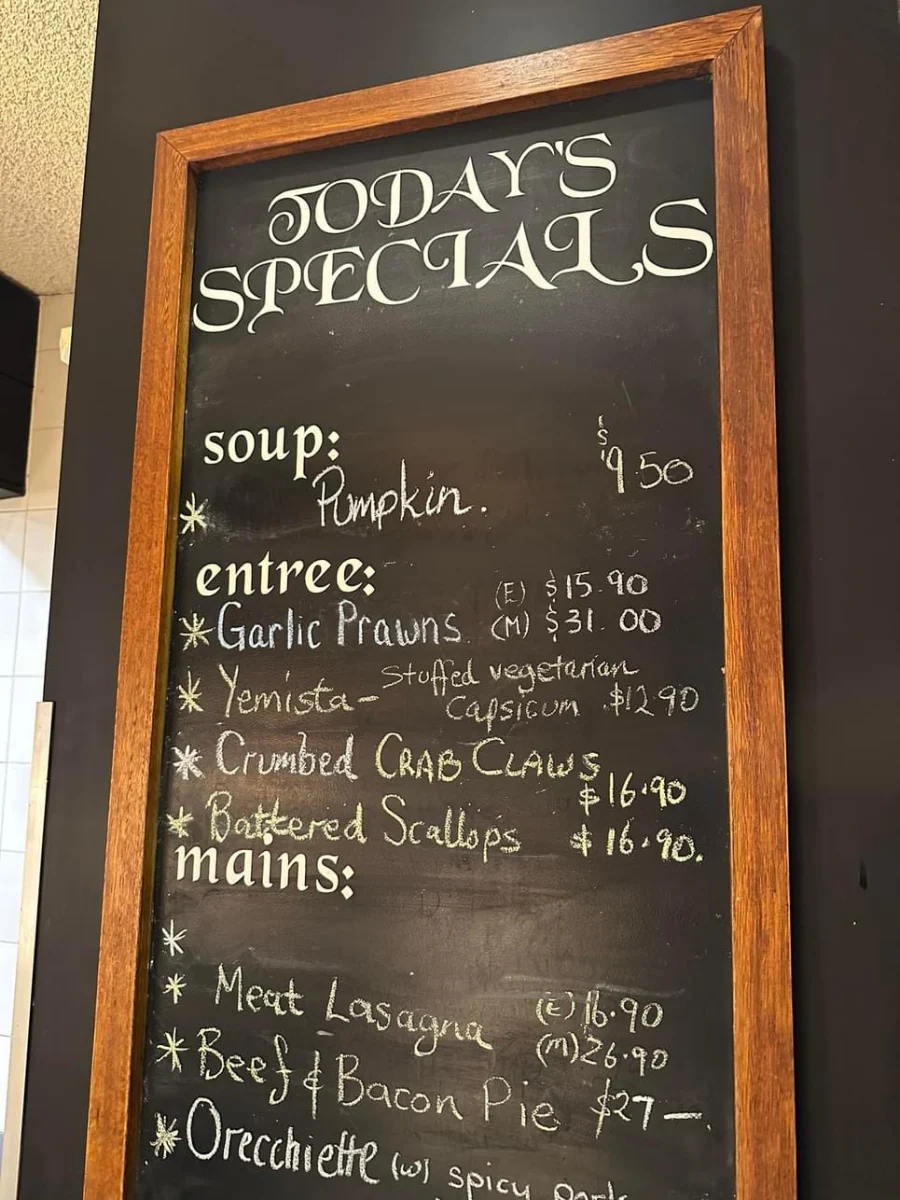 TODAY'S
SPECIALS
soup:
$9.50
* Pumpkin.
entree:
(E) $15.90
* Garlic Prawns (M) $31.00
* Yemista- Stuffed vegetarian
Capsicum $12.90
* Crumbed CRAB CLAWS
$16.90
* Battered Scallops $16.90.
mains:
*
* Meat Lasagna (E) 16.90
(M) 26.90
* Beef & Bacon Pie $27—.
* Orecchiette (w) spicy pork